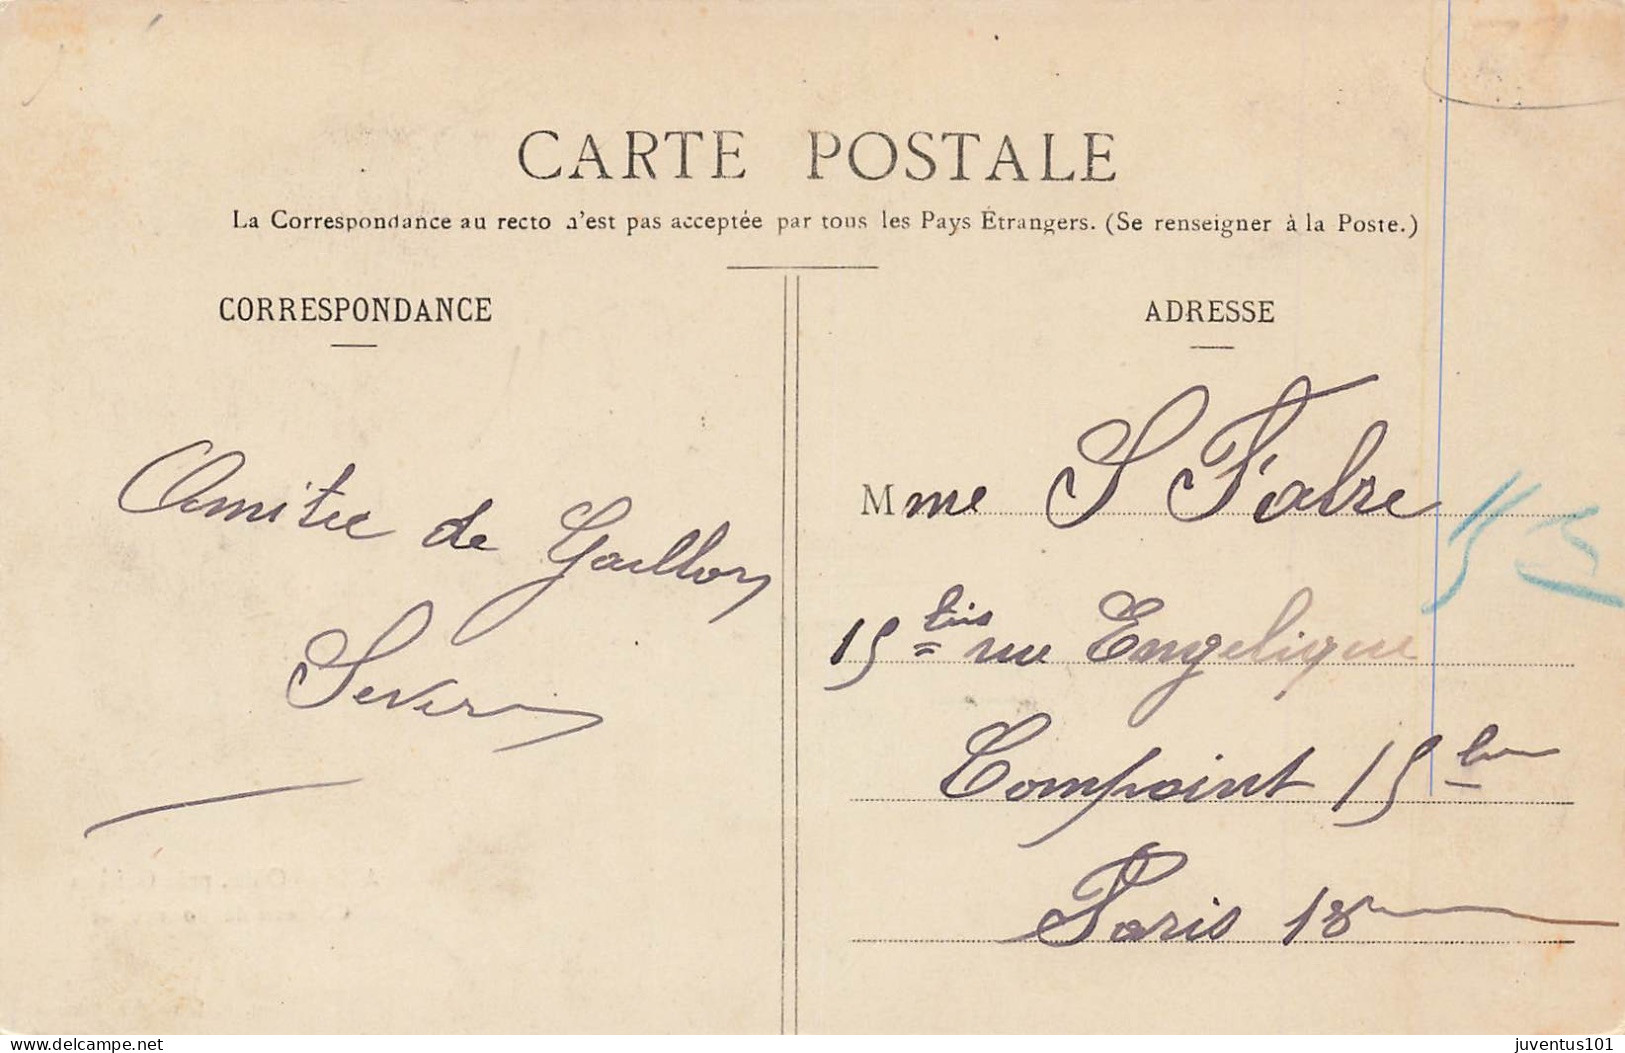 CARTE POSTALE
La Correspondance au recto n'est pas acceptée par tous les Pays Étrangers. (Se renseigner à la Poste.)
CORRESPONDANCE
ADRESSE
Amitie de Gaillon
Severin
Mme S Fabre
15 bis rue Engelique
Compoint 15 bis
Paris 18
15
delcampe.net
juventus101